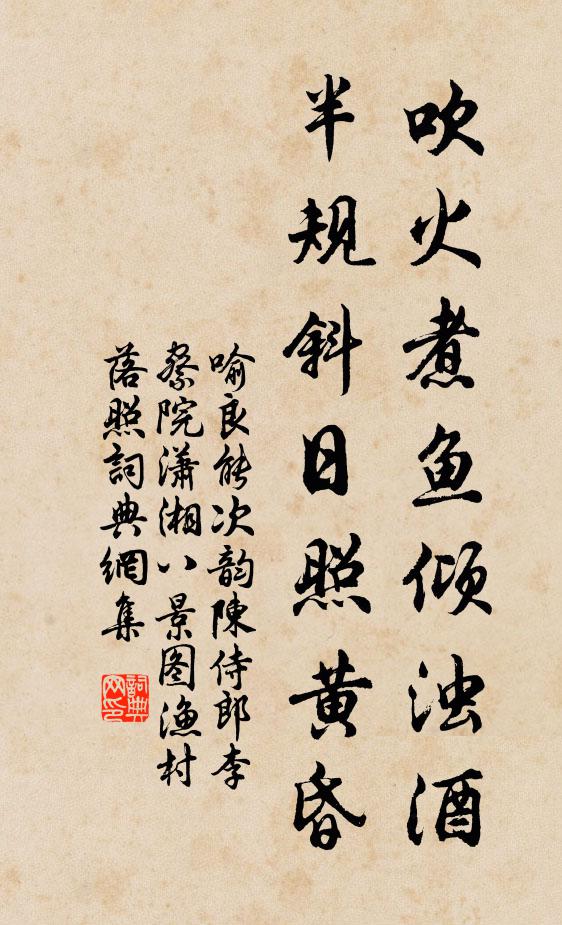 吹火煮鱼倾浊酒
半规斜日照黄昏
喻良能次韵陳侍郎李
察院潇湘八景图渔村
落照詞典網集
詞典
网印